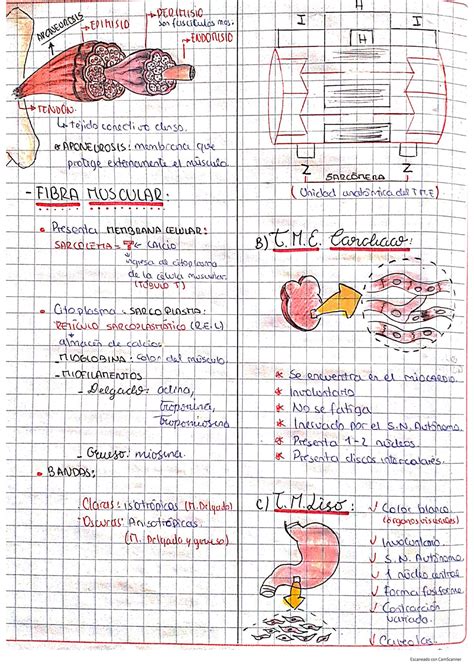 APONEUROSIS
EPIMISIO
PERIMISIO
son fascículos mos.
ENDOMISIO
TENDÓN.
tejido conectivo denso.
APONEUROSIS: membrana que
protege externamente el músculo.
- FIBRA MUSCULAR:
Presenta MEMBRANA CELULAR:
SARCOLEMA → calcio
ingresa de citoplasma
de la célula muscular.
(TÚBULO T)
Citoplasma: SARCOPLASMA:
RETÍCULO SARCOPLASMÁTICO (R.E.L)
almacén de calcio.
- MIOGLOBINA: color del músculo.
- MIOFILAMENTOS
- Delgado: actina,
troponina,
tropomiosina
- Grueso: miosina.
BANDAS:
Claras: isotrópicas (M. Delgado)
Oscuras: Anisotrópicas
(M. Delgado y grueso)
I
H
I
H
Z
Z
SARCÓMERA
(Unidad anatómica del T.M.E)
B) T.M.E. Cardiaco:
* Se encuentra en el MIOCARDIO.
* Involuntario
* No se fatiga
* Inervado por el S.N. Autónomo.
* Presenta 1-2 núcleos.
* Presenta discos intercalares.
C) T.M. Liso:
√ Color blanco
(órganos viscerales)
√ Involuntario.
√ S.N. Autónomo
√ 1 núcleo central
√ Forma fusiforme
√ Contracción
variada.
√ Caveolas.
Escaneado con CamScanner